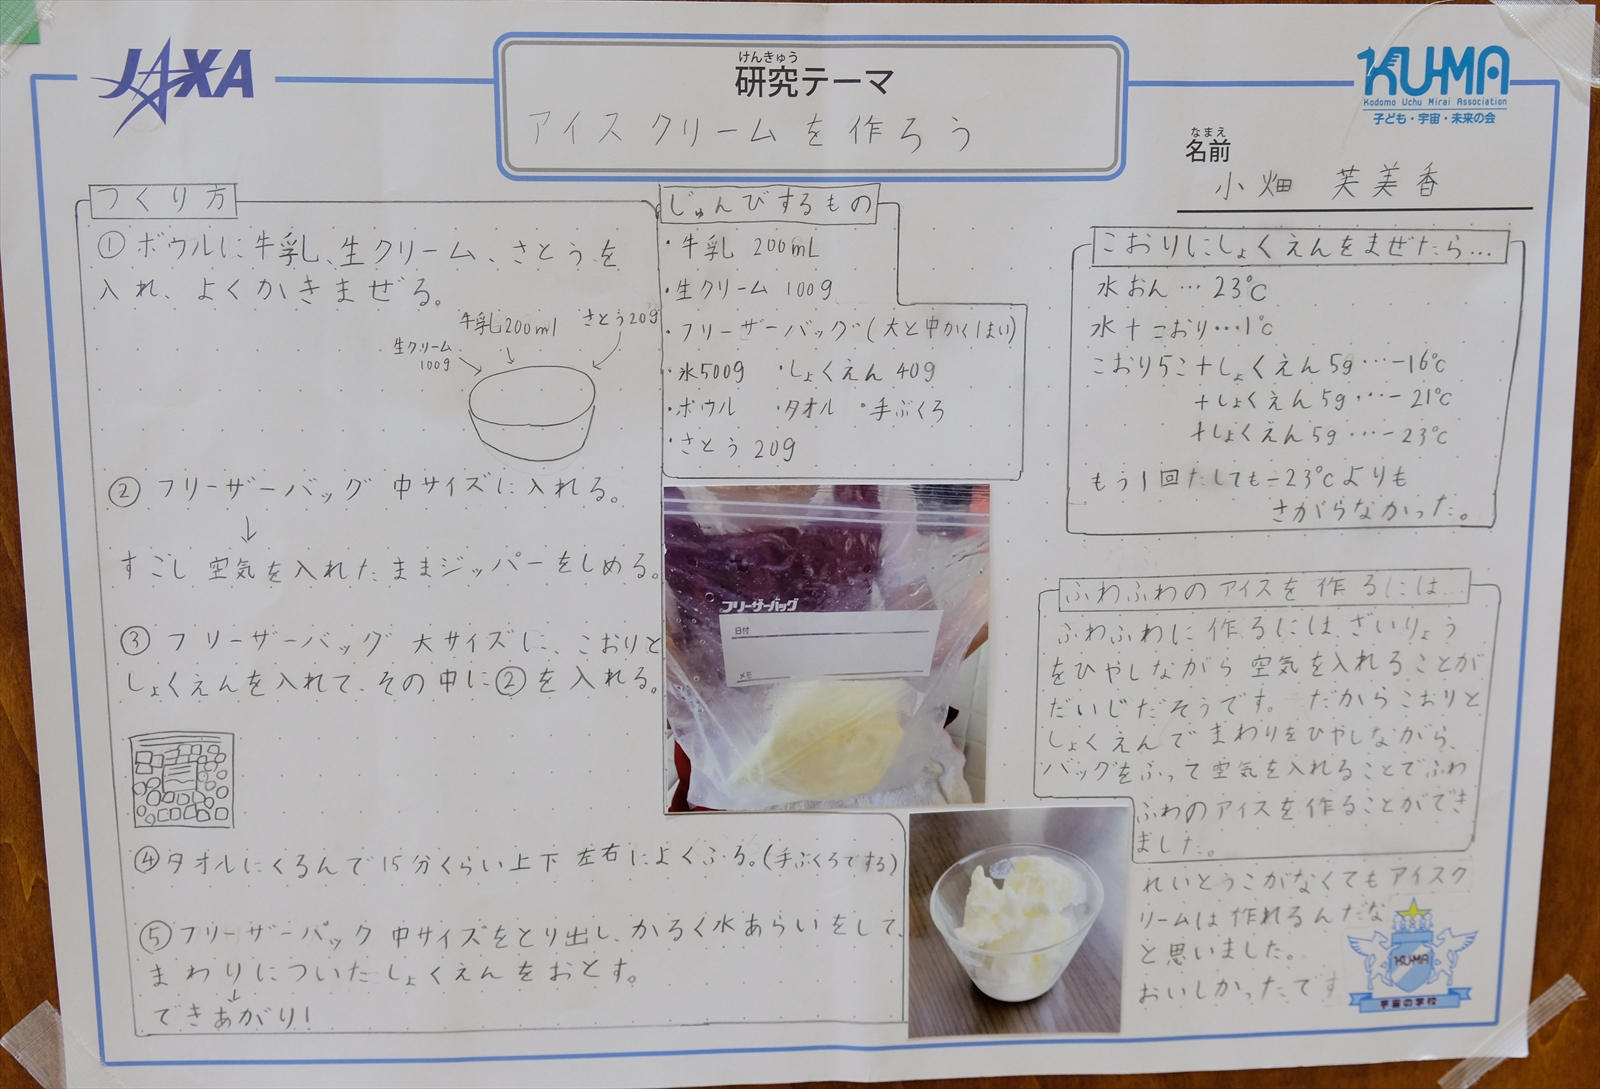 JAXA
けんきゅう
研究テーマ
アイスクリームを作ろう
KU-MA
Kodomo Uchu Mirai Association
子ども・宇宙・未来の会
なまえ
名前
小畑 芙美香
つくり方
①ボウルに牛乳、生クリーム、さとうを
入れ、よくかきまぜる。
生クリーム
100g
牛乳200ml
さとう20g
②フリーザーバッグ中サイズに入れる。
↓
すこし空気を入れたままジッパーをしめる。
③フリーザーバッグ大サイズに、こおりと
しょくえんを入れて、その中に②を入れる。
④タオルにくるんで15分くらい上下左右によくふる。(手ぶくろでする)
⑤フリーザーバック中サイズをとり出し、かるく水あらいをして、
まわりについたしょくえんをおとす。
↓
できあがり!
じゅんびするもの
・牛乳 200mL
・生クリーム 100g
・フリーザーバッグ(大と中かく1まい)
・氷500g ・しょくえん 40g
・ボウル ・タオル ・手ぶくろ
・さとう 20g
フリーザーバッグ
日付
メモ
こおりにしょくえんをまぜたら…
水おん…23℃
水+こおり…1℃
こおり5こ+しょくえん5g…-16℃
+しょくえん5g…-21℃
+しょくえん5g…-23℃
もう1回たしても-23℃よりも
さがらなかった。
ふわふわのアイスを作るには…
ふわふわに作るには、ざいりょう
をひやしながら空気を入れることが
だいじだそうです。だからこおりと
しょくえんでまわりをひやしながら、
バッグをふって空気を入れることでふわ
ふわのアイスを作ることができ
ました。
れいとうこがなくてもアイスク
リームは作れるんだな
と思いました。
おいしかったです
KU-MA
宇宙の学校